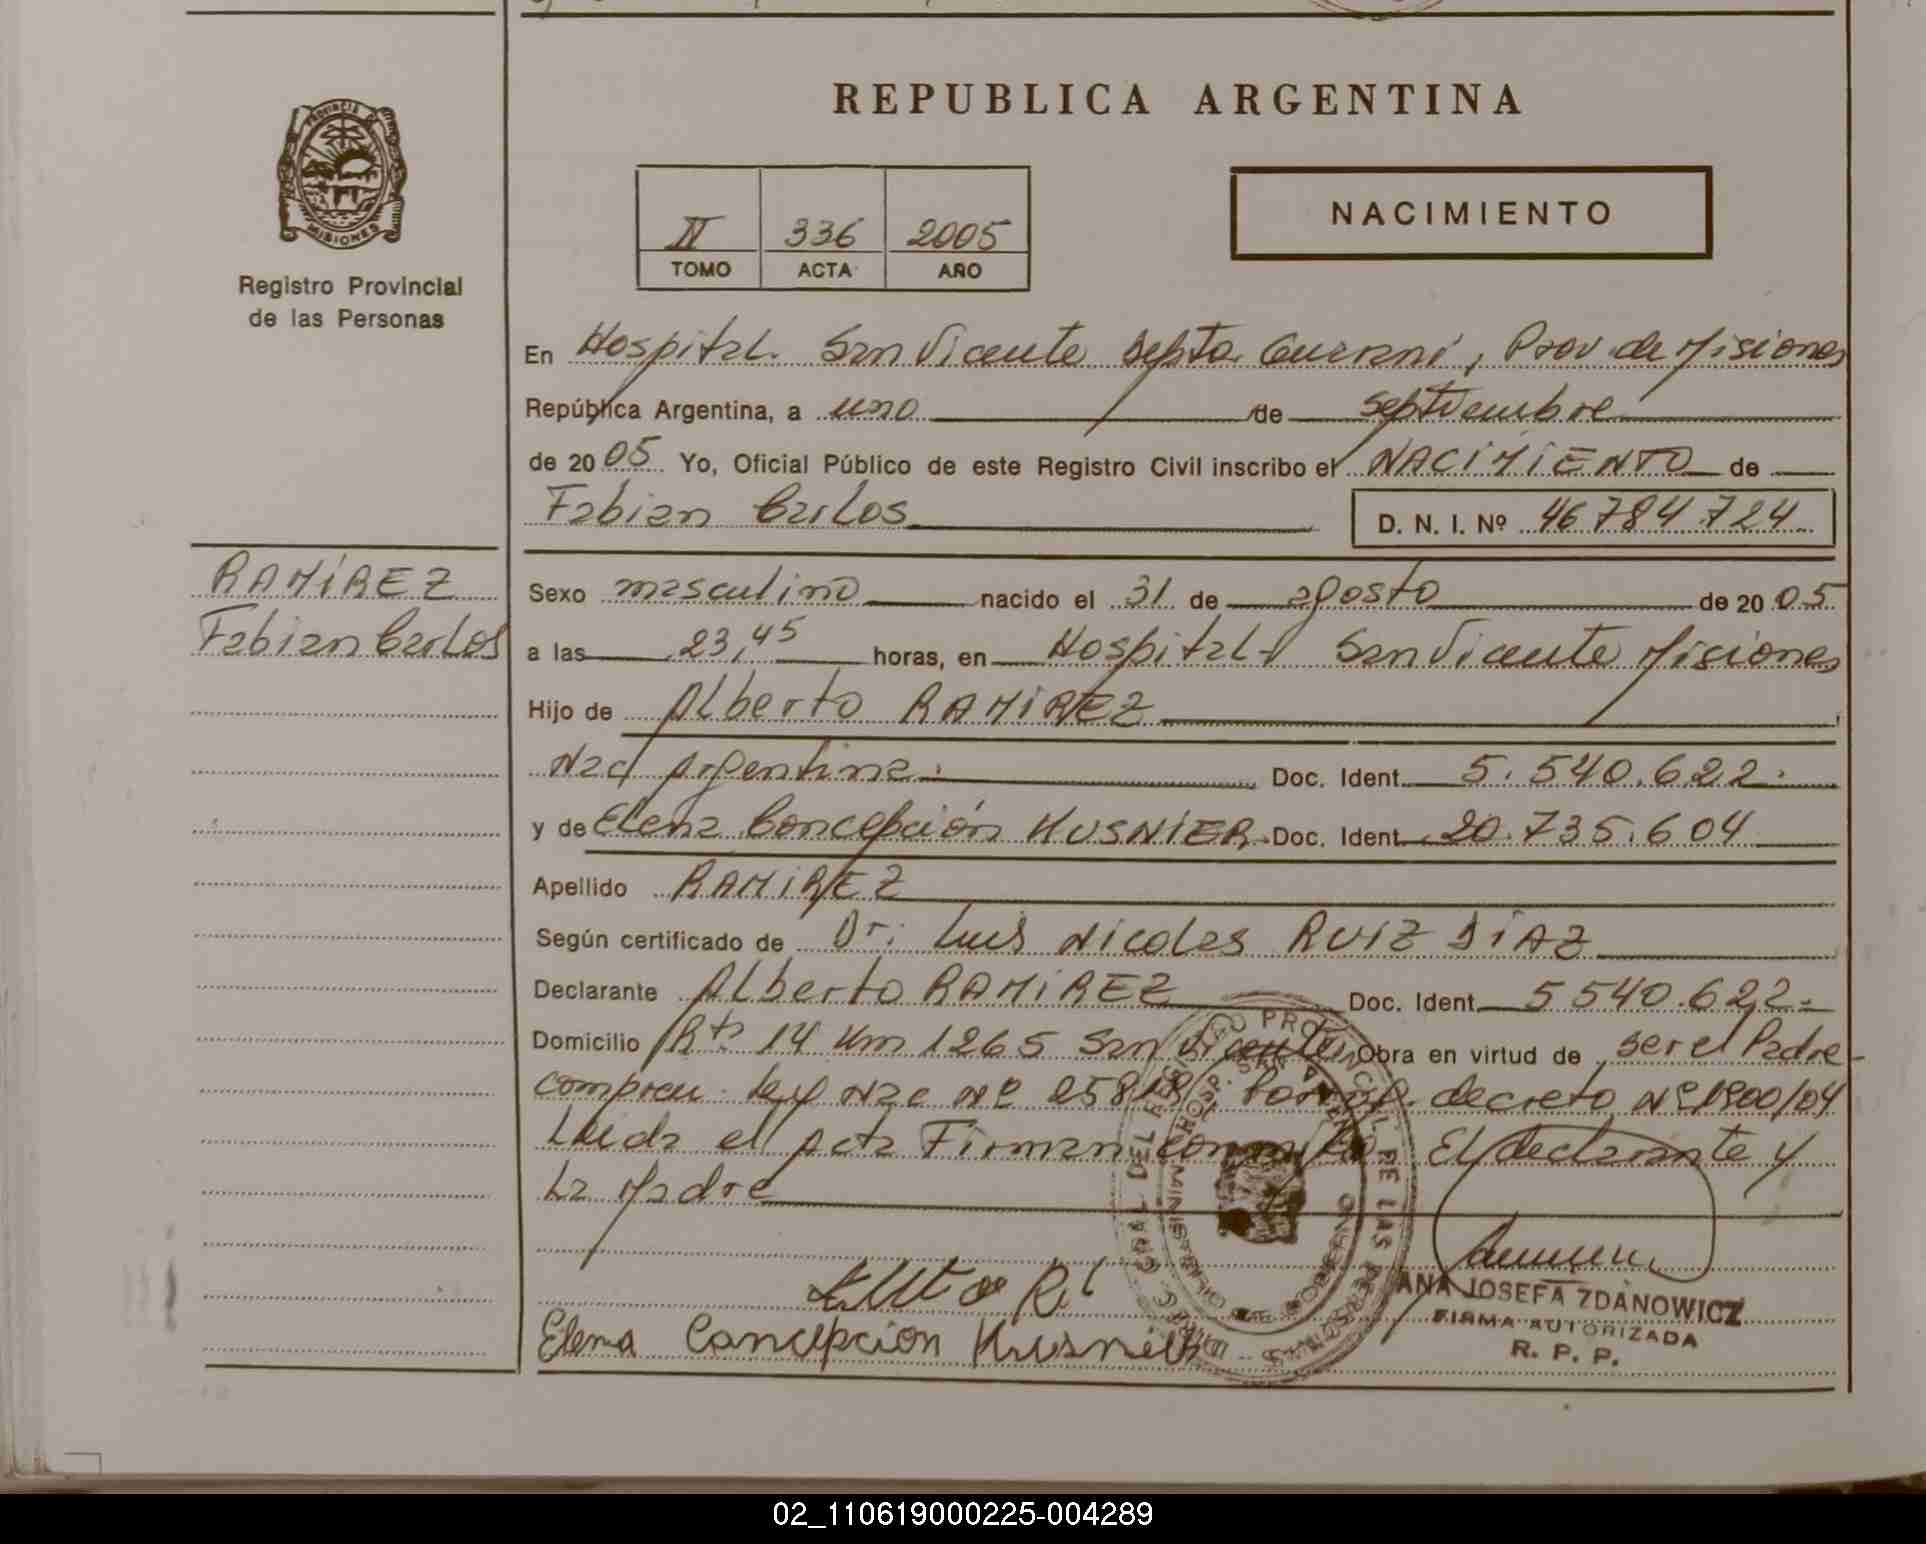 REPUBLICA ARGENTINA
PROVINCIA DE MISIONES
Registro Provincial
de las Personas
II 336 2005
TOMO ACTA AÑO
NACIMIENTO
En Hospital San Vicente Depto Guaraní, Prov. de Misiones
República Argentina, a uno de septiembre
de 2005 Yo, Oficial Público de este Registro Civil inscribo el NACIMIENTO de
Fabian Carlos
D. N. I. Nº 46 784.724
RAMÍREZ
Fabian Carlos
Sexo masculino nacido el 31 de agosto de 2005
a las 23,45 horas, en Hospital San Vicente Misiones
Hijo de Alberto RAMIREZ
Nac Argentina. Doc. Ident. 5.540.622.
y de Elena Concepción KUSNIER Doc. Ident. 20.735.604
Apellido RAMIREZ
Según certificado de Dr. Luis Nicolas RUIZ DÍAZ
Declarante Alberto RAMIREZ Doc. Ident. 5 540.622.
Domicilio Rta 14 Km 1265 San Vicente Obra en virtud de ser el Padre
Ley Nac Nº decreto Nº 1900/04
Leida el Acta Firman conmigo El declarante y
La Madre
Elena Concepcion Kusnier
REGISTRO PROVINCIAL DE LAS PERSONAS
HOSP. SAN VICENTE
ANA JOSEFA ZDANOWICZ
FIRMA AUTORIZADA
R. P. P.
02_110619000225-004289